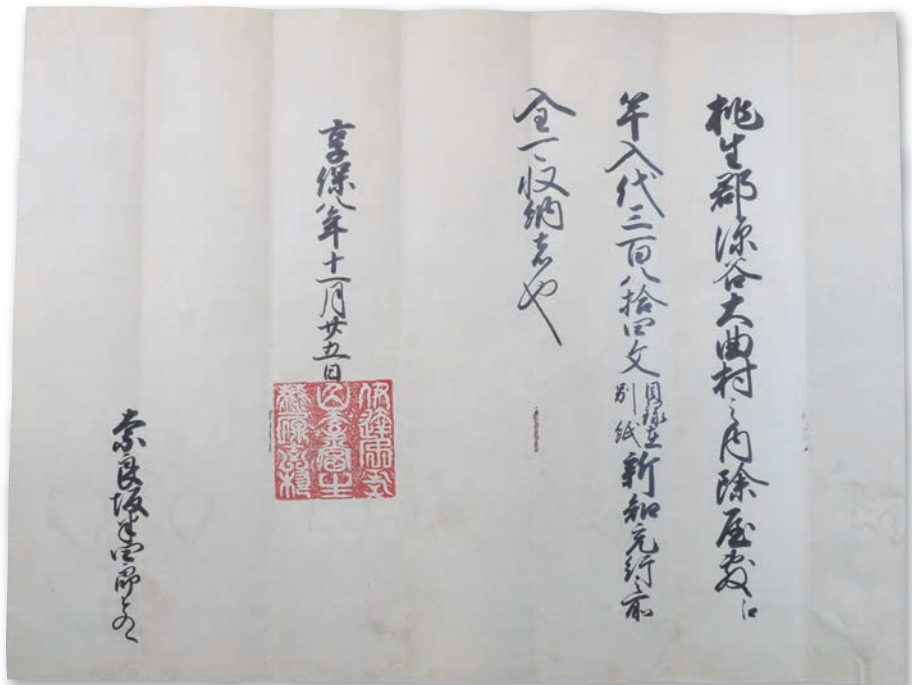 桃生郡深谷大曲村之内除屋敷江
竿入代三百八拾四文目録在別紙新知充行之前
全可収納者也
享保八年十一月廿五日
奈良坂半四郎との